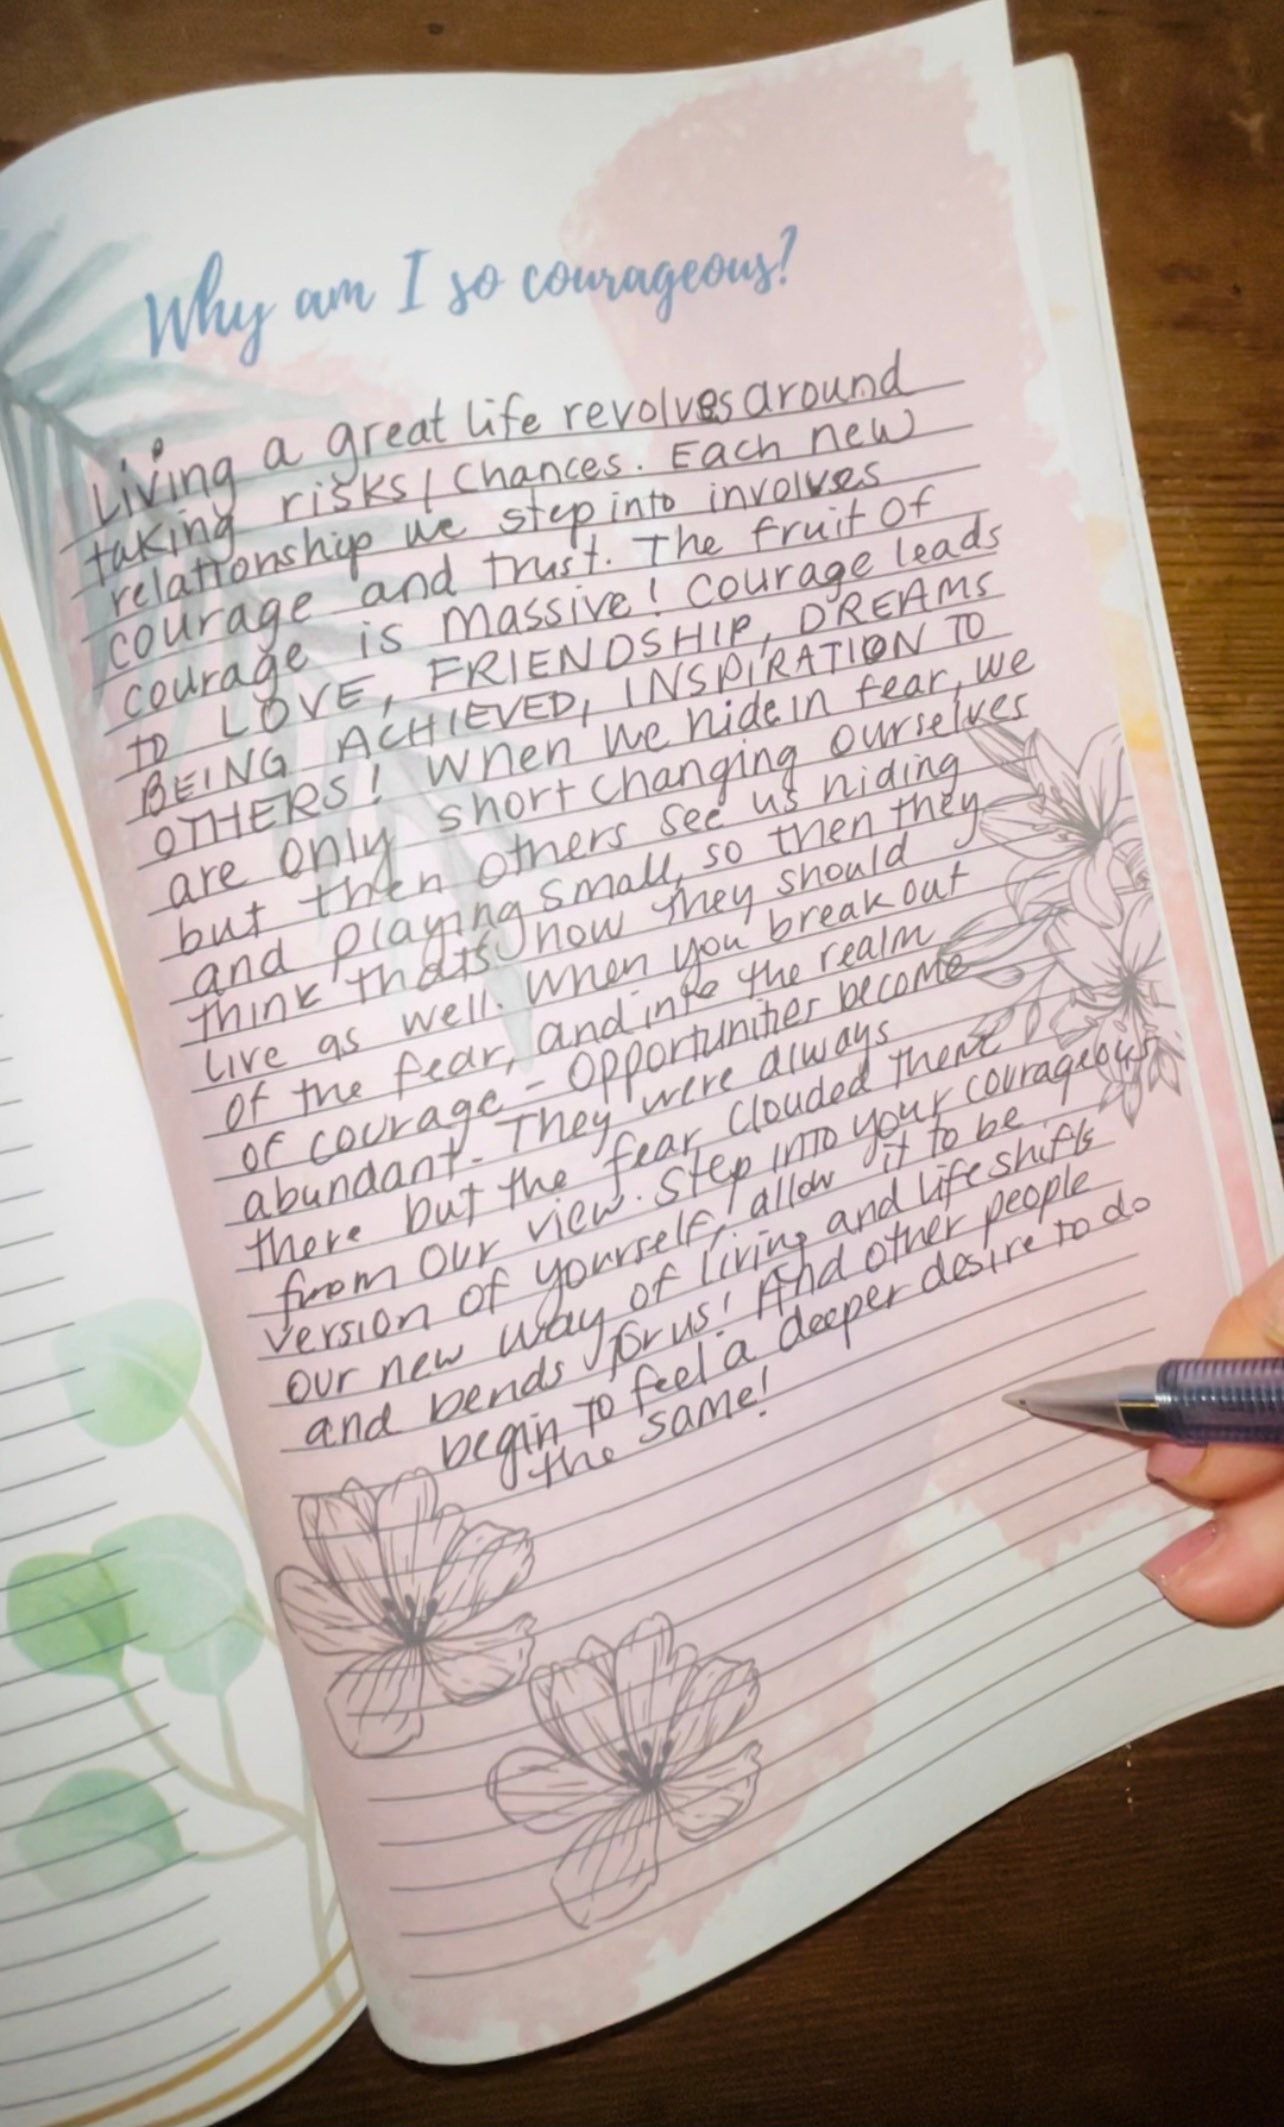 Why am I so courageous?
Living a great life revolves around
taking risks/chances. Each new
relationship we step into involves
courage and trust. The fruit of
courage is massive! Courage leads
to LOVE, FRIENDSHIP, DREAMS
BEING ACHIEVED, INSPIRATION TO
OTHERS! When we hide in fear, we
are only short changing ourselves
but then others see us hiding
and playing small, so then they
think thats how they should
live as well. When you break out
of the fear, and into the realm
of courage - opportunities become
abundant. They were always
there but the fear clouded them
from our view. Step into your courageous
version of yourself, allow it to be
our new way of living and life shifts
and bends for us! And other people
begin to feel a deeper desire to do
the same!